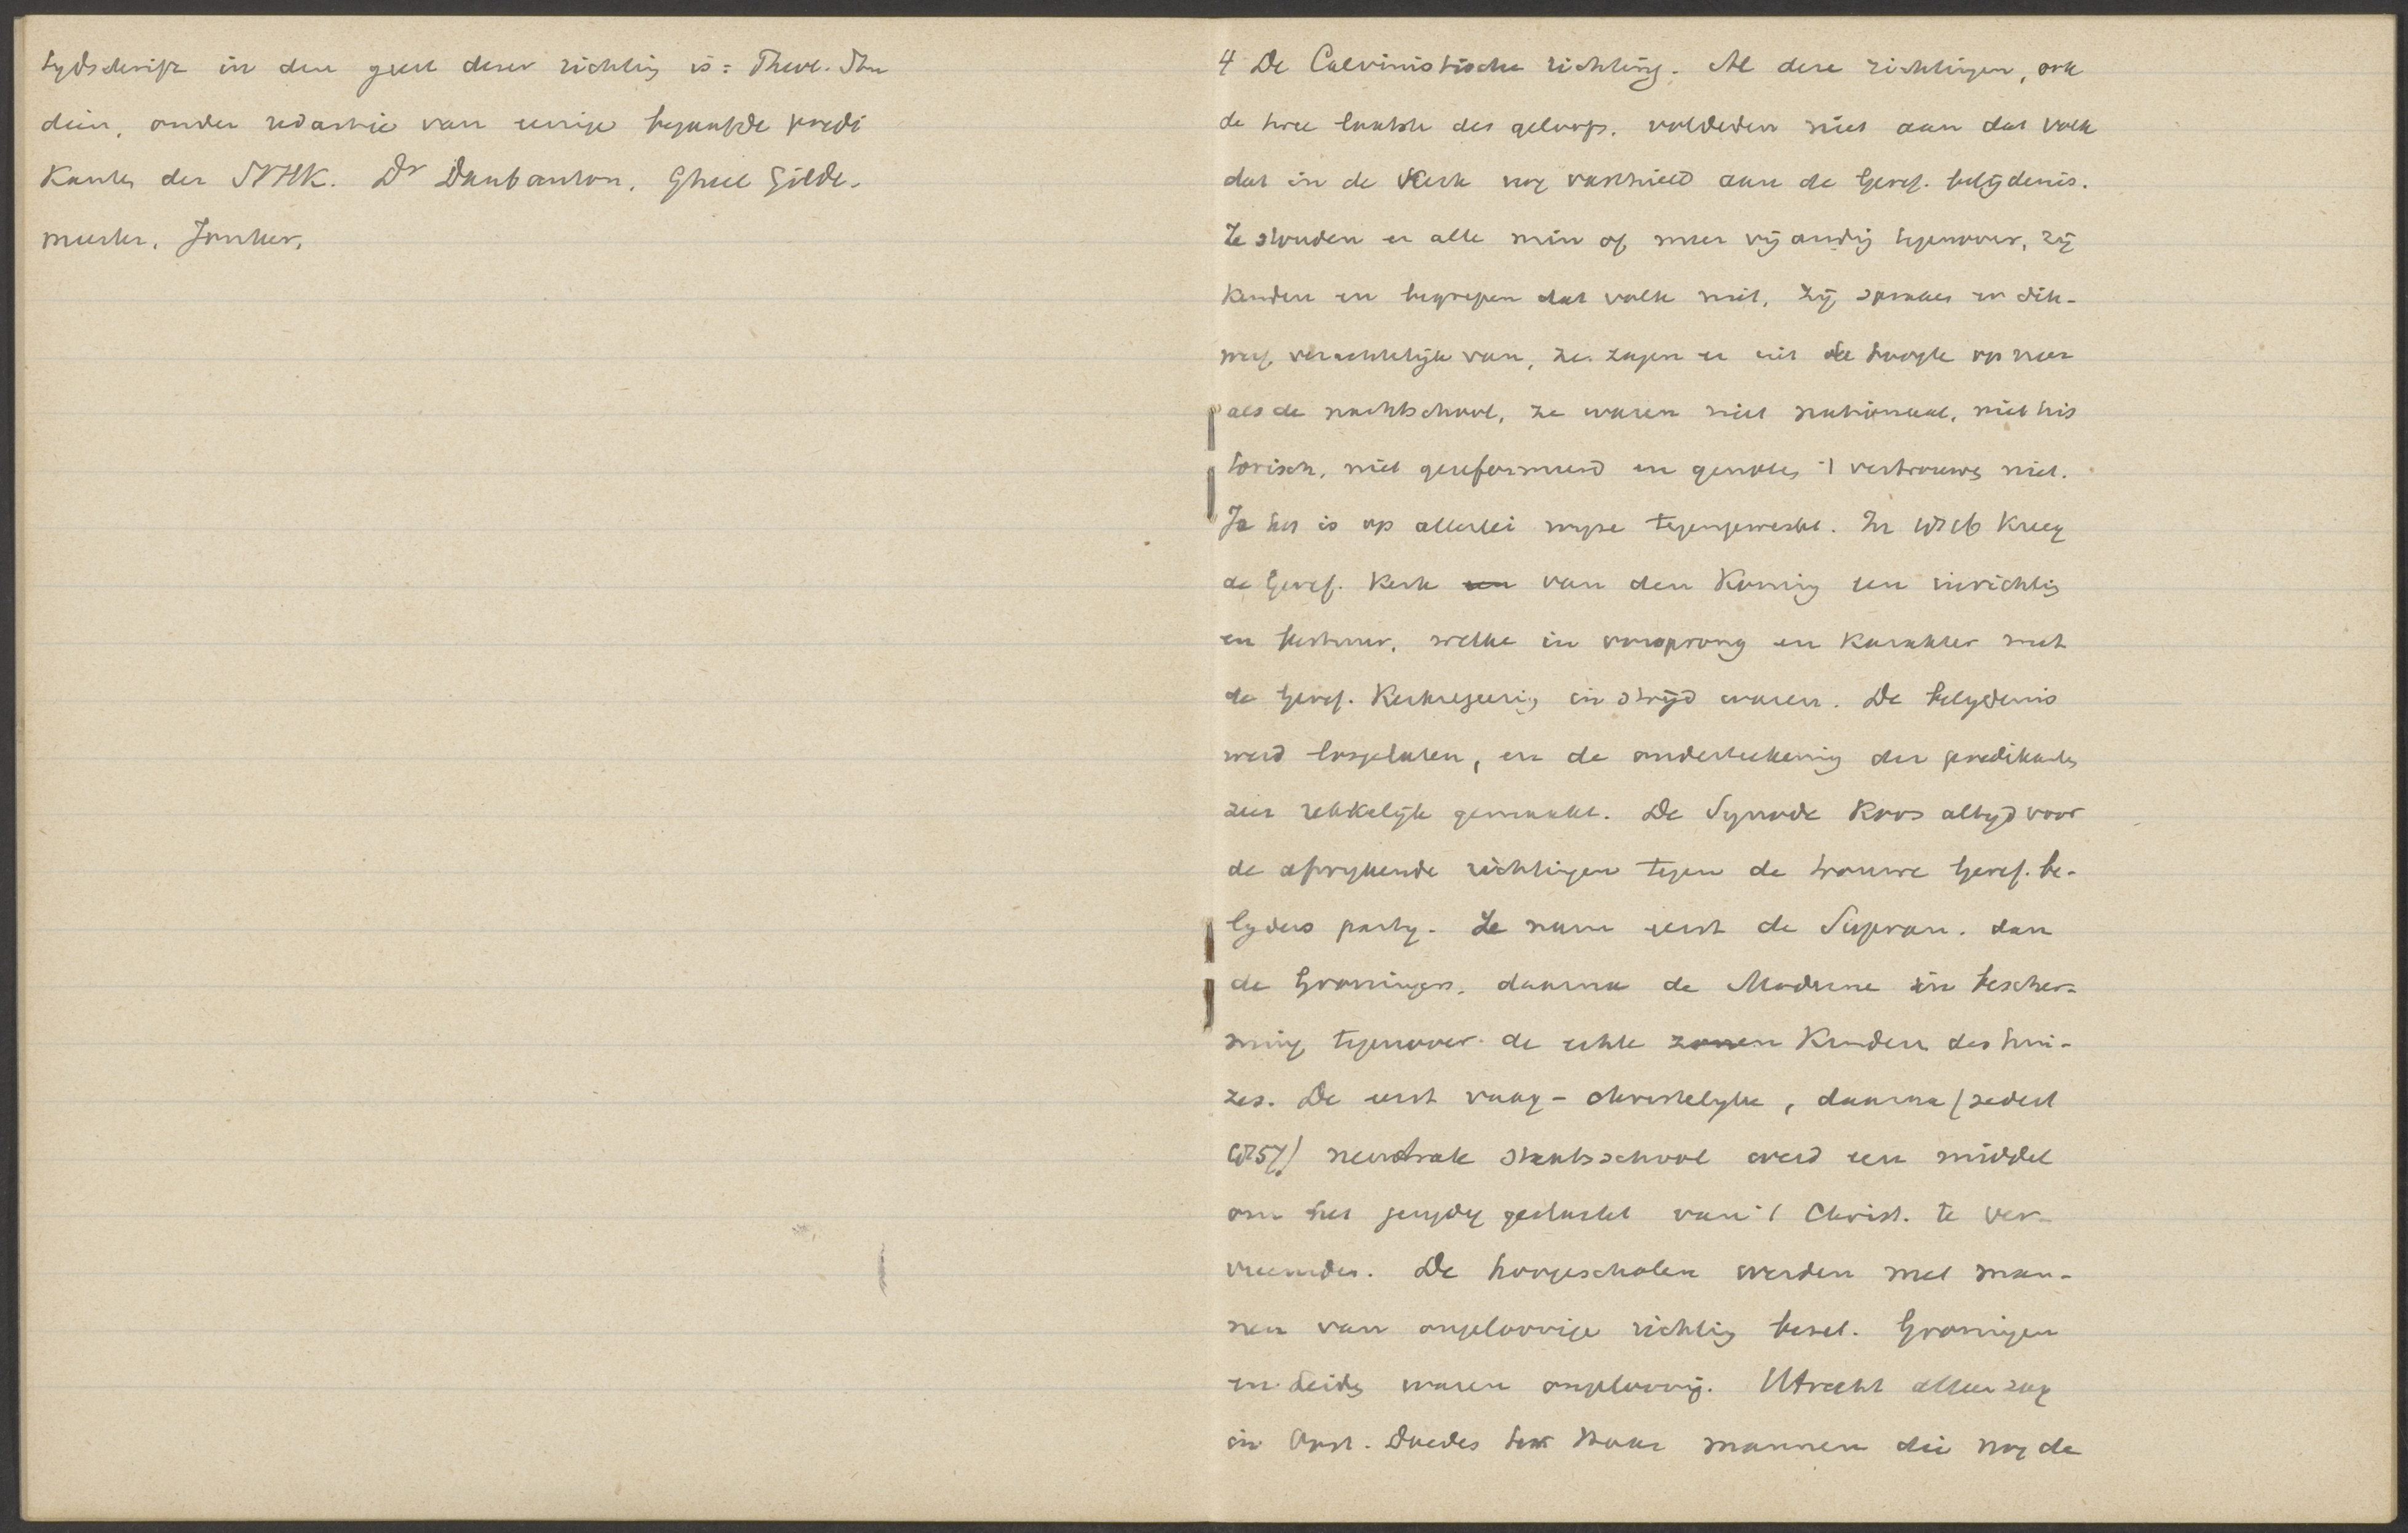 tydschrift in den geest dezer richting is: Theol. Stu
diën, onder redactie van eenige begaafde predi
kanten der NHK. Dr Daubanton, Gheel Gilde-
meester, Jonker,
4 De Calvinistische richting. Al deze richtingen, ook
de twee laatste des geloofs, voldeden niet aan dat volk
dat in de Kerk nog vasthield aan de Geref. belijdenis.
Ze stonden er alle min of meer vijandig tegenover, zij
kenden en begrepen dat volk niet, zij spraken er dik-
werf verachtelijk van, ze zagen er uit de hoogte op neer
als de nachtschool, ze waren niet nationaal, niet his
torisch, niet gereformeerd en genoten 't vertrouwen niet.
Ja het is op allerlei wyze tegengewerkt. In 1816 kreeg
de Geref. Kerk een van den Koning een inrichting
en bestuur, welke in oorsprong en karakter met
de Geref. Kerkregeering in strijd waren. De belydenis
werd losgelaten, en de onderteekening der predikanten
zeer rekkelijk gemaakt. De Synode koos altyd voor
de afwykende richtingen tegen de trouwe Geref. be-
lyders party. Ze nam eerst de Supran. dan
de Groningers, daarna de Moderne in bescher-
ming tegenover de echte zonen kinderen des hui-
zes. De eerst vaag-christelyke, daarna (sedert
1857) neutrale staatsschool werd een middel
om het jeugdig geslacht van 't Christ. te ver-
vreemden. De hoogescholen werden met man-
nen van ongeloovige richting bezet. Groningen
en Leiden waren ongeloovig. Utrecht alleen zag
in Oost. Doedes mannen die nog de